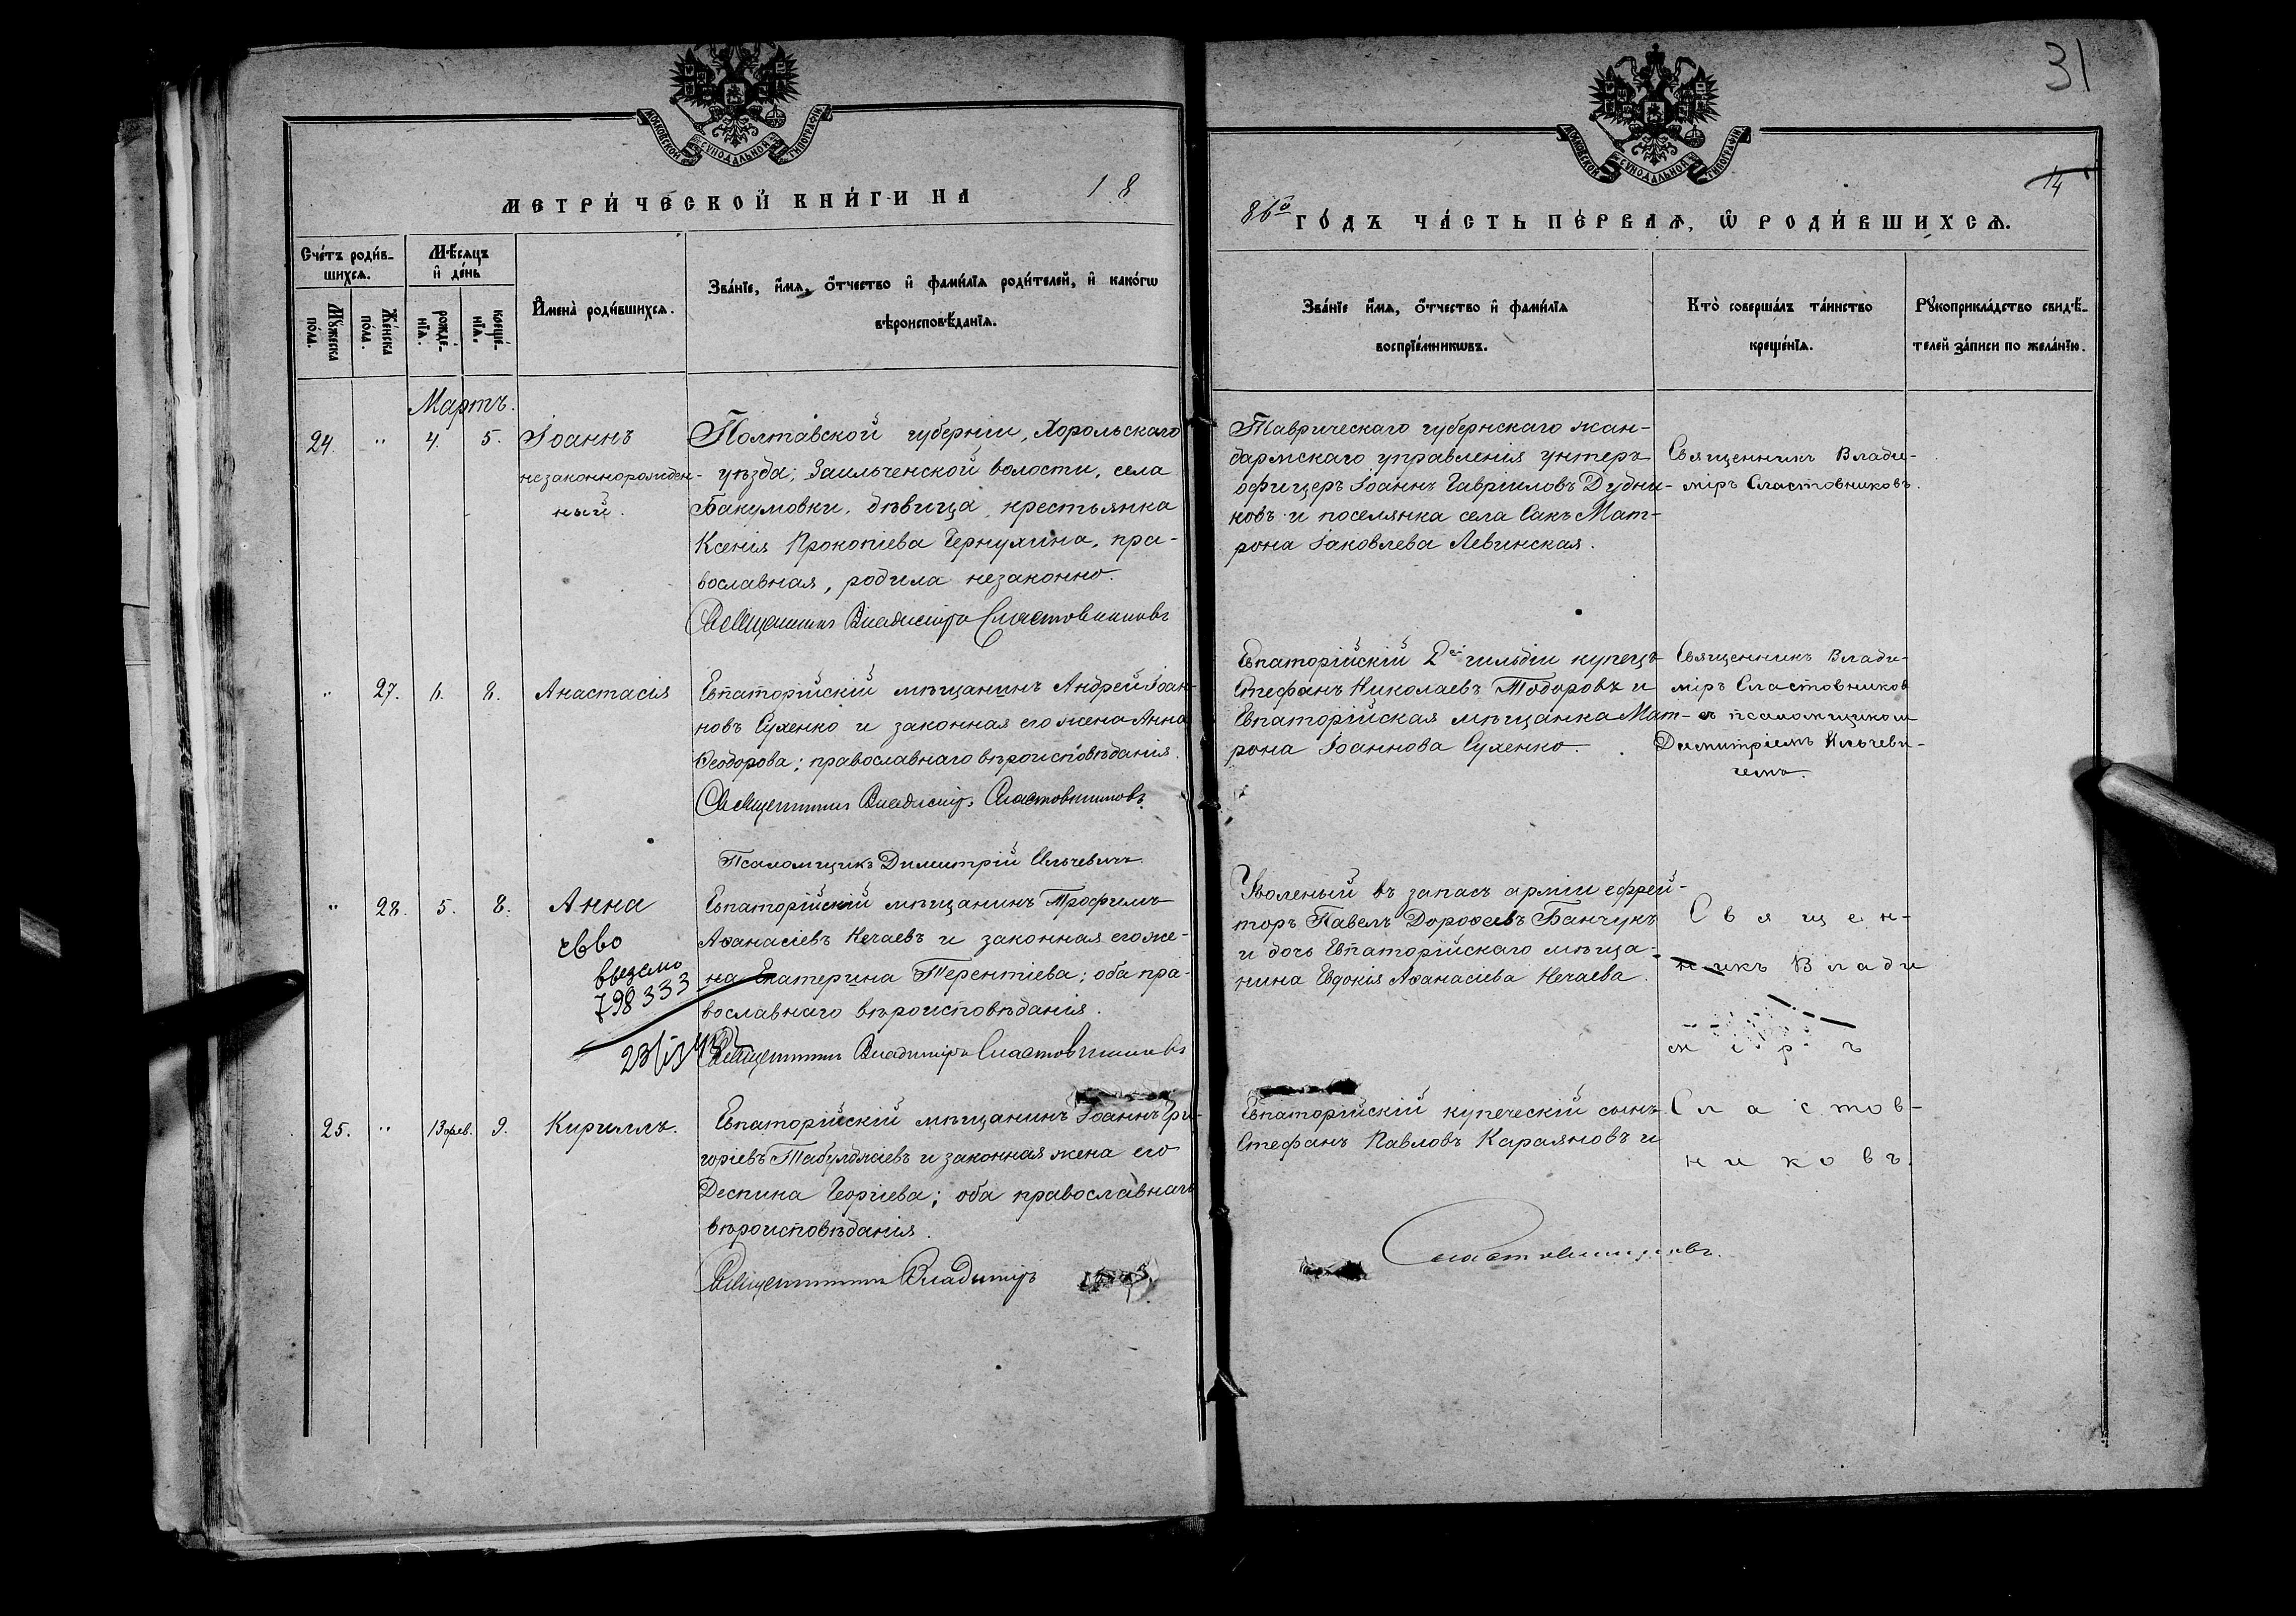 31
14
МОСКОВСКОЙ СУНОДАЛЬНОЙ ТИПОГРАФІИ
МОСКОВСКОЙ СУНОДАЛЬНОЙ ТИПОГРАФІИ
МЕТРИ́ЧЕСКОЙ КНИ́ГИ НА 18
86го ГО́ДЪ ЧА́СТЬ ПЕ́РВАЯ, Ѡ РОДИ́ВШИХСЯ.
Сче́тъ роди́в-
шихся.
Мꙋ́жеска
по́ла.
Же́нска
по́ла.
Мѣ́сяцъ
и҆ де́нь
рожде́-
нїѧ.
креще́-
нїѧ.
И҆мена̀ роди́вшихсѧ.
Зва́нїе, и҆́мѧ, ѻ҆́тчество и҆ фами́лїѧ роди́телей, и҆ како́гѡ
вѣроисповѣ́данїѧ.
Зва́нїе и҆́мѧ, ѻ҆́тчество и҆ фами́лїѧ
воспрїе́мникѡвъ.
Кто̀ соверша́лъ та́инство
креще́нїѧ.
Рꙋкоприкла́дство свидѣ́-
телей за́писи по жела́нїю.
Мартъ.
24. " 4. 5. Іоаннъ
незаконнорожден-
ный.
Полтавской губерніи, Хорольскаго
уѣзда, Заильченской волости, села
Бакумовки, дѣвица, крестьянка
Ксенія Прокопіева Чернухина, пра-
вославная, родила незаконно.
Священникъ Владиміръ Сластовниковъ
Таврическаго губернскаго жан-
дармскаго управленія унтеръ
офицеръ Іоаннъ Гавриловъ Дудни-
ковъ и поселянка села Сакъ Мат-
рона Іаковлева Левинская.
Священникъ Влади-
міръ Сластовниковъ.
" 27. 6. 8. Анастасія
Евпаторійскій мѣщанинъ Андрей Іоан-
новъ Сухенко и законная его жена Анна
Ѳеодорова; православнаго вѣроисповѣданія.
Священникъ Владиміръ Сластовниковъ.
Псаломщикъ Димитрій Ильчевичъ.
Евпаторійскій 2ей гильдіи купецъ
Стефанъ Николаевъ Тодоровъ и
Евпаторійская мѣщанка Мат-
рона Іоаннова Сухенко.
Священникъ Влади-
міръ Сластовников
съ псаломщиком
Димитріемъ Ильчеви-
чемъ.
" 28. 5. 8. Анна
798333
Евпаторійскій мѣщанинъ Трофимъ
Аѳанасіевъ Нечаевъ и законная его же-
на Екатерина Терентіева; оба пра-
вославнаго вѣроисповѣданія.
Священникъ Владиміръ Сластовниковъ
Уволеный въ запасъ арміи ефрей-
торъ Павелъ Дороѳеевъ Банчукъ
и дочь Евпаторійскаго мѣща-
нина Евдокія Аѳанасіева Нечаева.
Священ-
никъ Влади
міръ
25. " 13 фев. 9. Кириллъ.
Евпаторійскій мѣщанинъ Іоаннъ Гри-
горіевъ Табулджіевъ и законная жена его
Деспина Георгіева; оба православнаго
вѣроисповѣданія.
Священникъ Владиміръ
Евпаторійскій купеческій сынъ
Стефанъ Павловъ Караяновъ и
Сластовниковъ.
Сластов-
никовъ.